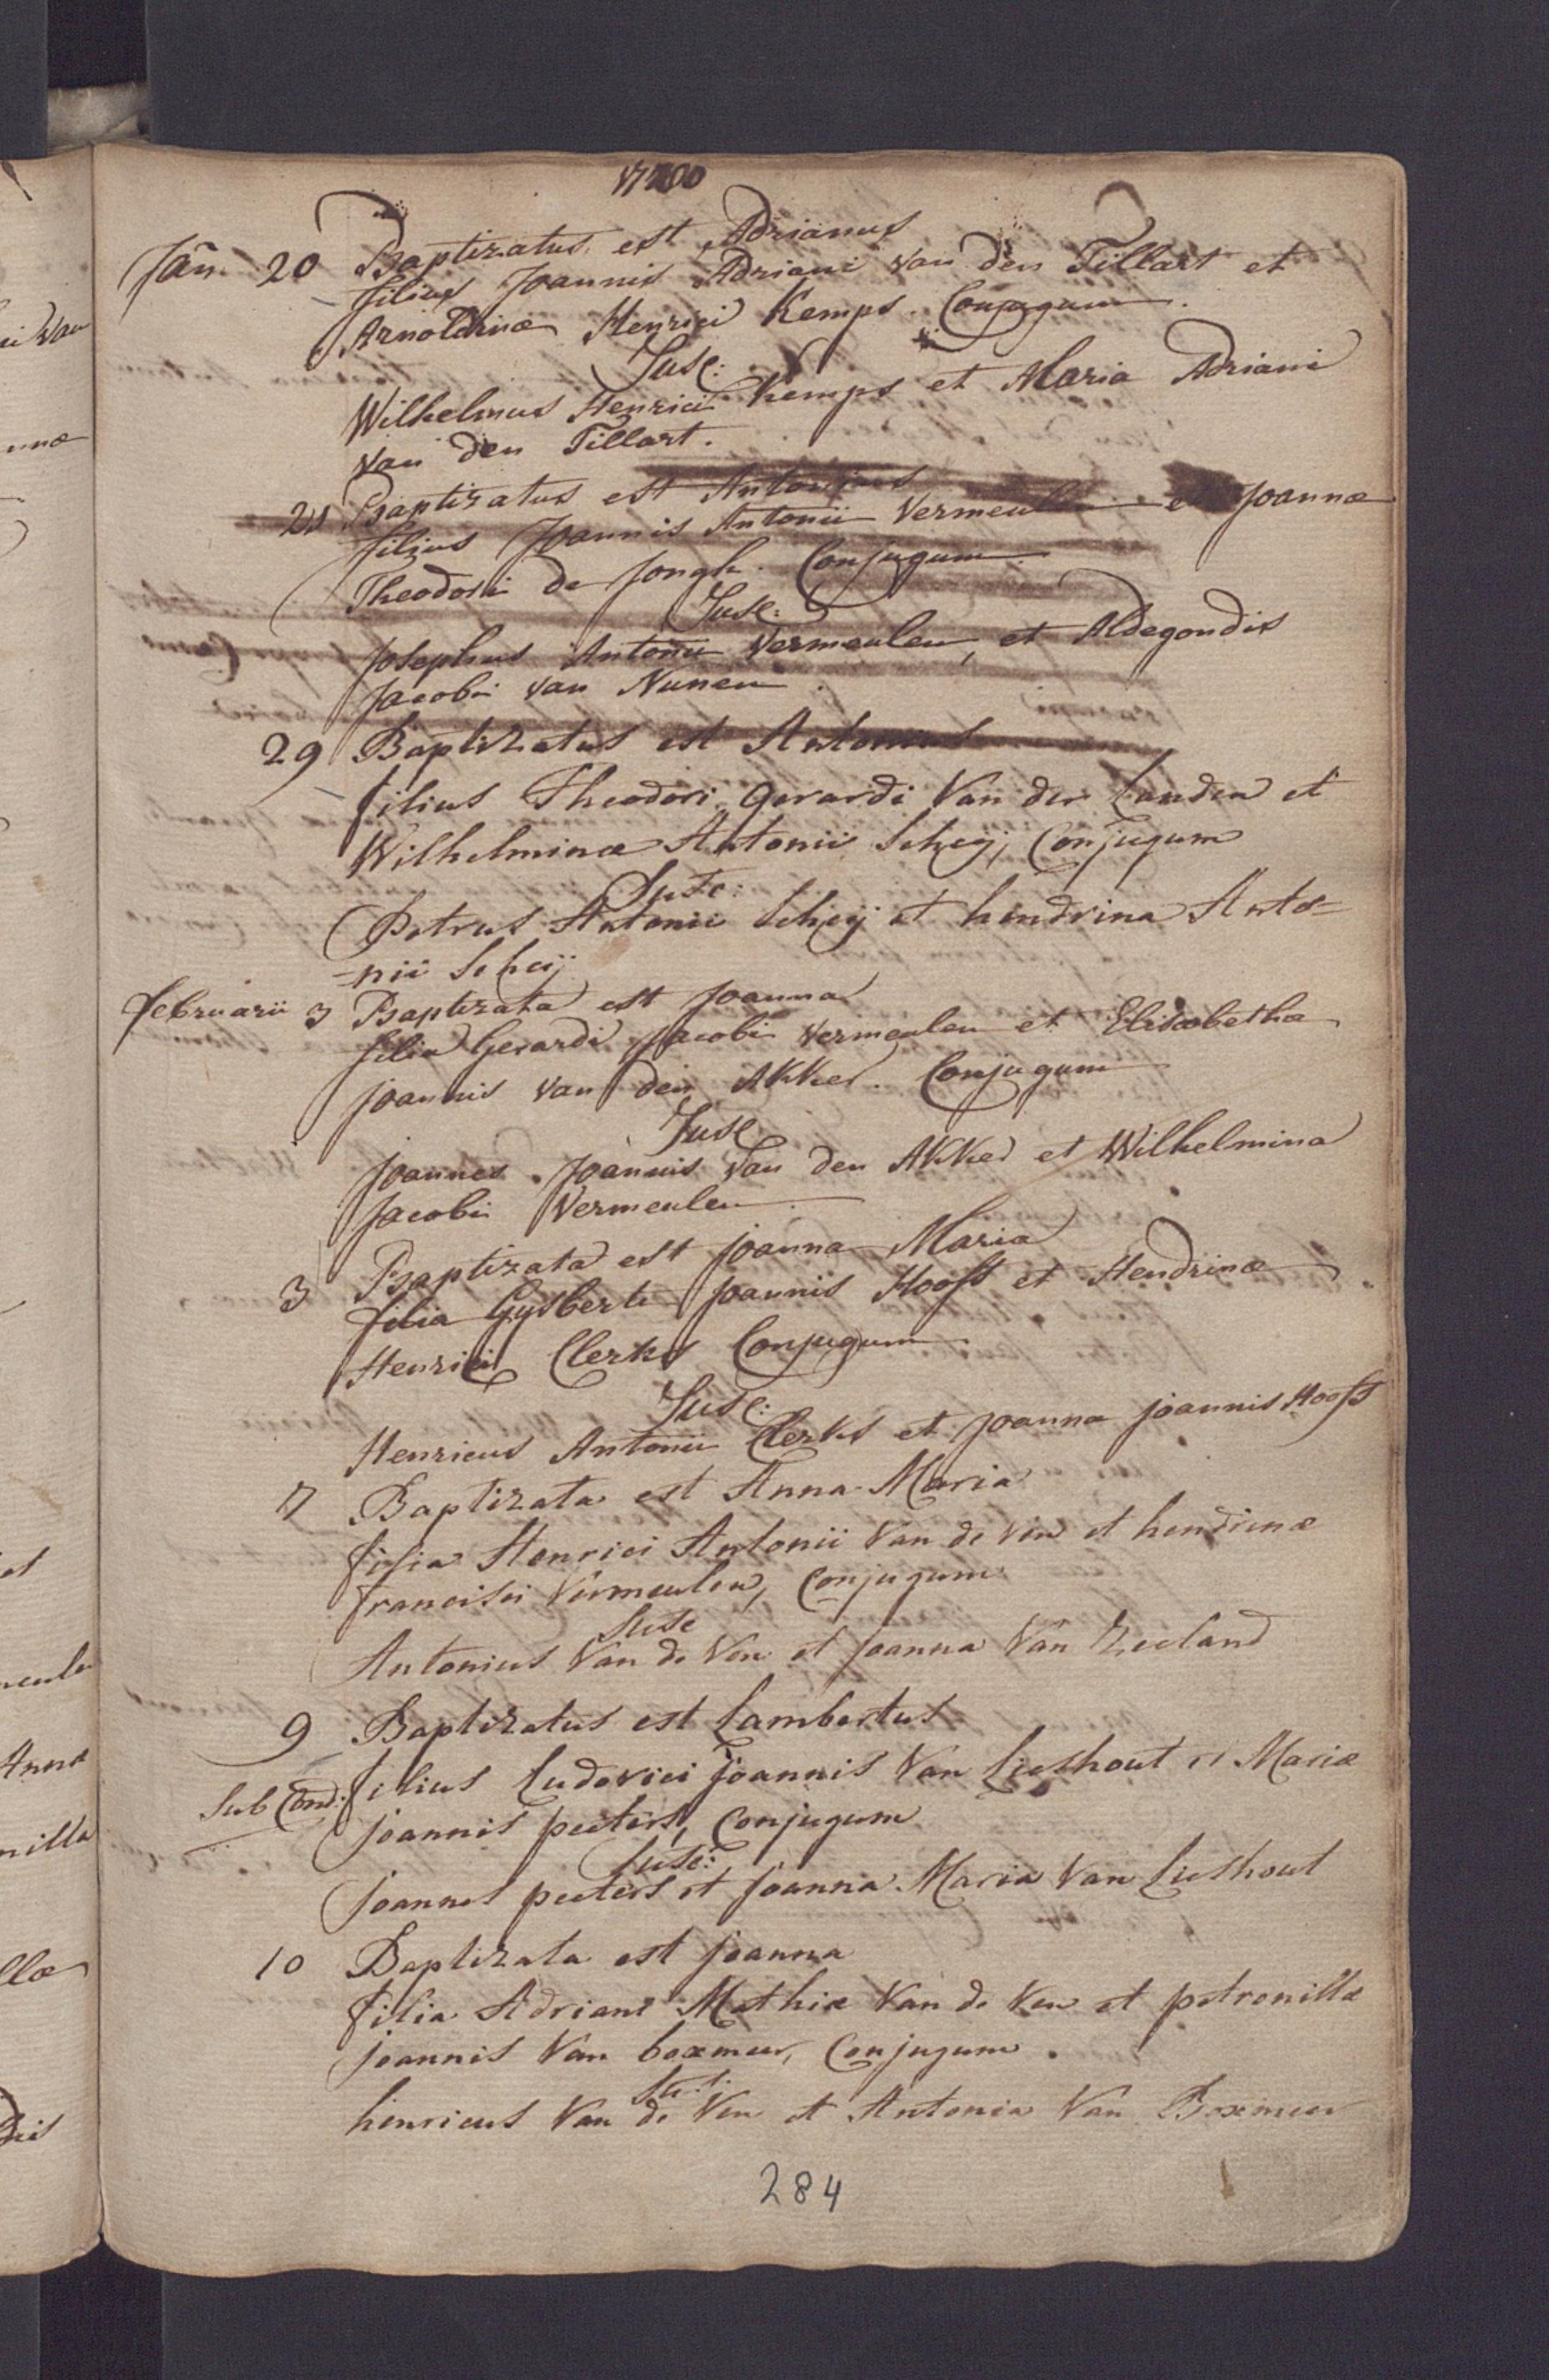 Jan. 20 Baptizatus est Adrianus
filius Joannis Adriani van den Tillart et
Arnoldinæ Henrici Kemps. Conjugum.
Susc:
Wilhelmus Henrici Kemps et Maria Adriani
van den Tillart.
21 Baptizatus est Antonius
filius Joannis Antonii Vermeulen et Joannæ
Theodori de Jongh. Conjugum
Susc:
Josephus Antonii Vermeulen, et Aldegondis
Jacobi van Nunen.
29 Baptizatus est Antonius
filius Theodori Gerardi Van der Landen et
Wilhelminæ Antonii Scheij, Conjugum
Susc:
Petrus Antonii Scheij et hendrina Anto=
=nii Scheij
februarii 3 Baptizata est Joanna
filia Gerardi Jacobi Vermeulen et Elisabethæ
Joannis van den Akker. Conjugum
Susc
Joannes Joannis Van den Akker et Wilhelmina
Jacobi Vermeulen.
3 Baptizata est Joanna Maria
filia Gysberti Joannis Hooft et Hendrinæ
Henrici Clerks Conjugum.
Susc:
Henricus Antonii Clerks et Joanna Joannis Hooft
7 Baptizata est Anna Maria
filia Henrici Antonii Van de Ven et hendrinæ
francisci Vermeulen, Conjugum
Susc
Antonius Van de Ven et Joanna Van Zeeland
9 Baptizatus est Lambertus
Sub Cond: filius Ludovici Joannis Van Lieshout et Mariæ
Joannis peeters, Conjugum
Susc:
Joannes peeters et Joanna Maria Van Lieshout
10 Baptizata est Joanna
filia Adriani Mathiæ Van de Ven et petronillæ
Joannis Van boxmeer, Conjugum.
Sus:
henricus Van de Ven et Antonia Van Boxmeer
284